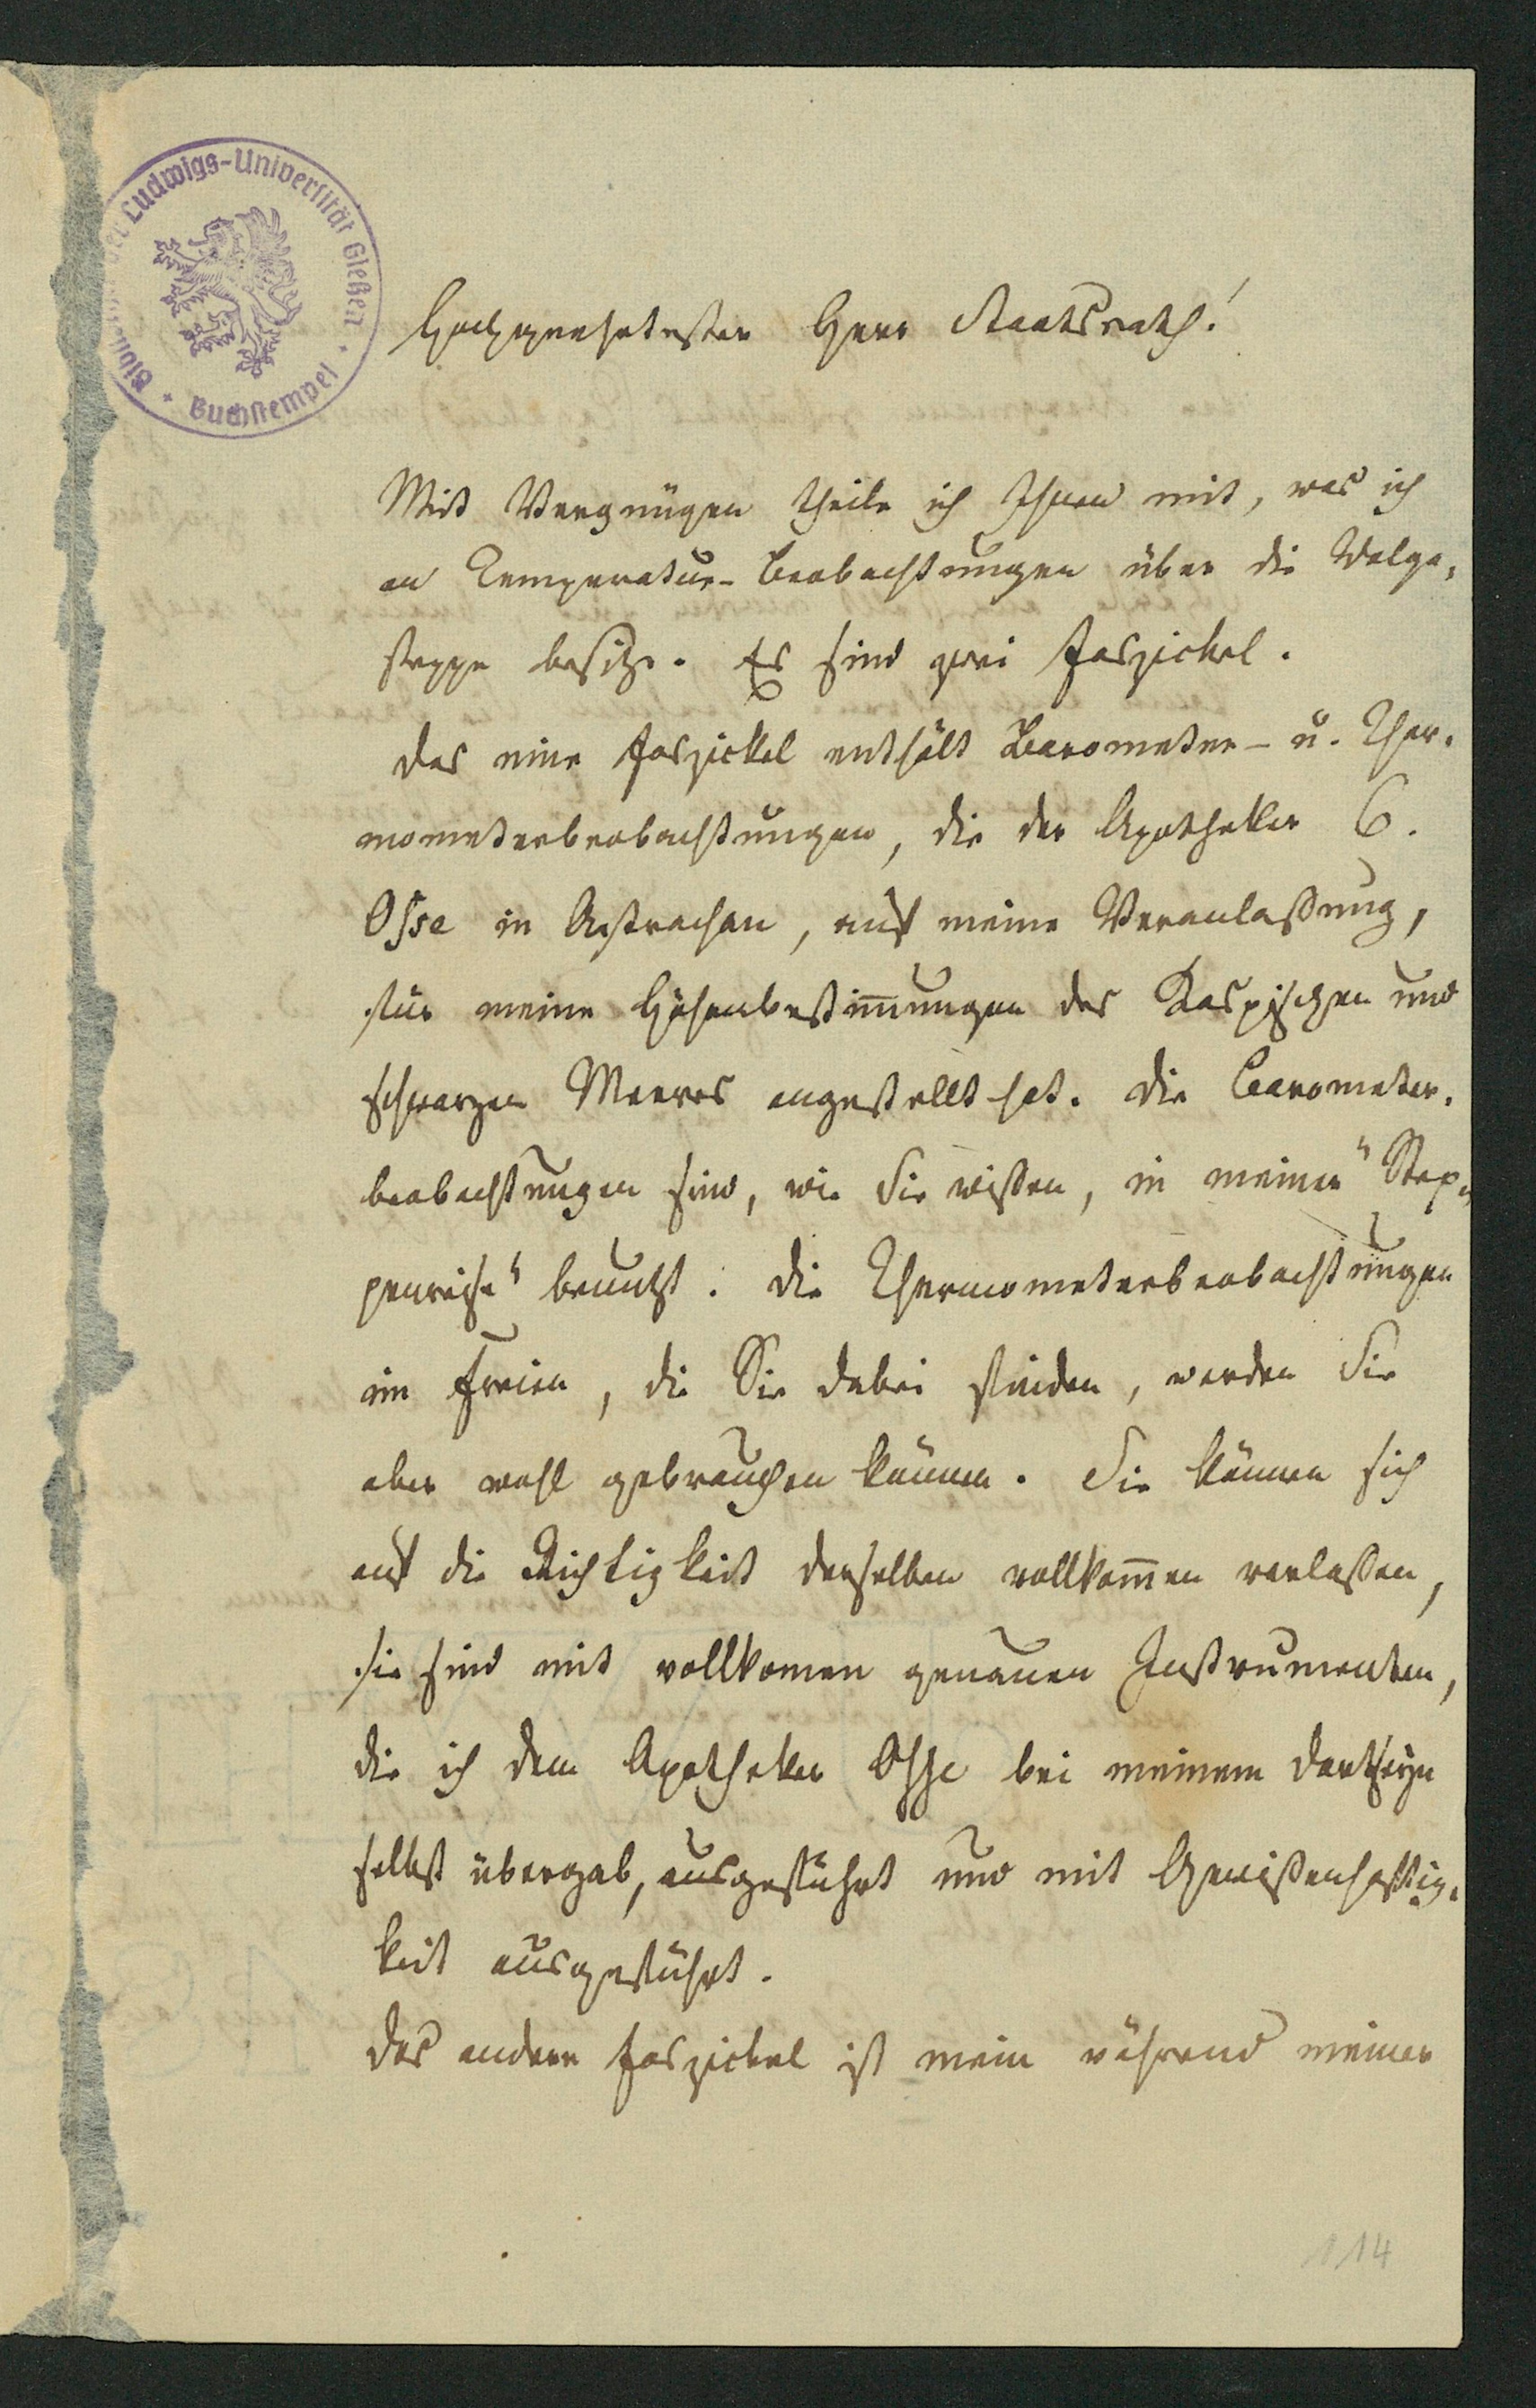 der Ludwigs-Universität Gießen
Buchstempel
Hochgeehrtester Herr Staatsrath!
Mit Vergnügen theile ich Ihnen mit, was ich
an Temperatur-Beobachtungen über die Wolga-
steppe besitze. Es sind zwei Faszickel.
Das eine Faszickel enthält Barometer- u. Ther-
mometerbeobachtungen, die der Apotheker C.
Osse in Astrachan, auf meine Veranlaßung,
für meine Höhenbestim̅ungen des Kaspischen und
schwarzen Meeres angestellt hat. Die Barometer-
beobachtungen sind, wie Sie wißen, in meiner "Step-
penreise" benutzt. Die Thermometerbeobachtungen
im Freien, die Sie dabei finden, werden Sie
aber wohl gebrauchen können. Sie können sich
auf die Richtigkeit derselben vollkom̅en verlaßen,
sie sind mit vollkomen genauen Instrumenten,
die ich dem Apotheker Osse bei meinem Dortseyn
selbst übergab, ausgeführt und mit Gewißenhaftig-
keit ausgeführt.
Das andere Faszickel ist mein während meiner
114